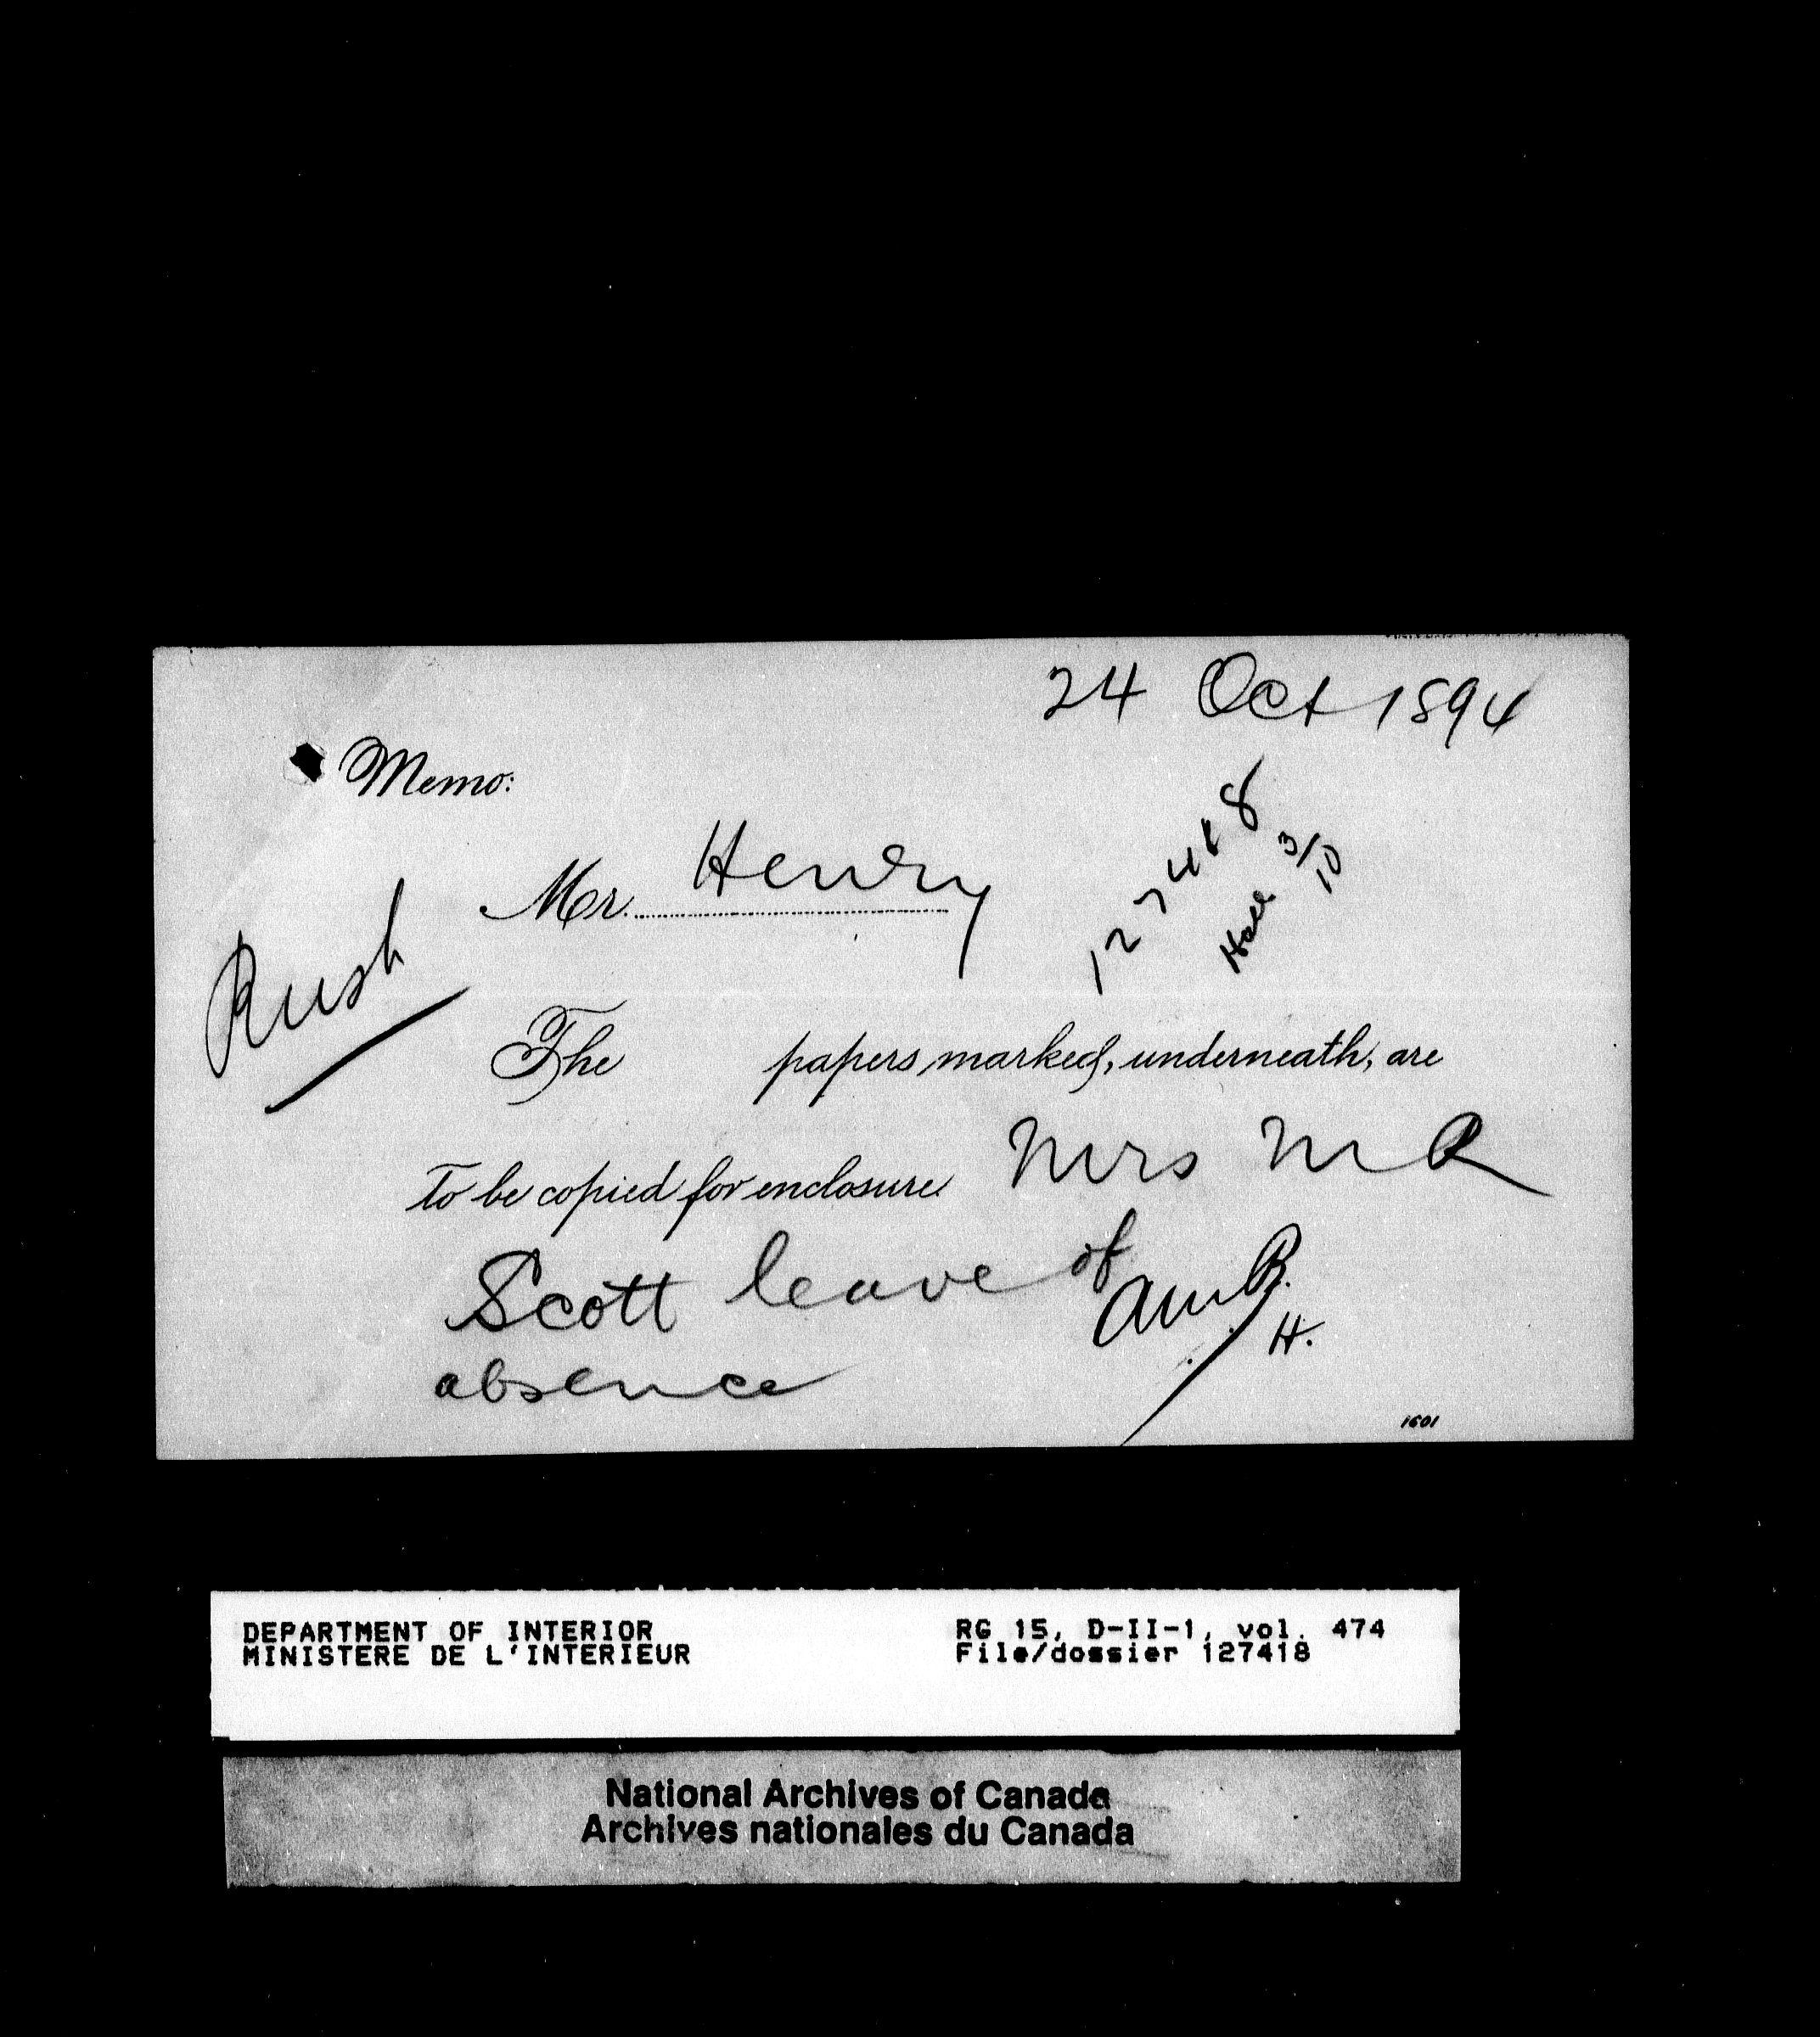 24 Oct 1894
Memo:
Mr. Henry
127418
Hall 3/10
Rush
The papers marked, underneath, are
to be copied for enclosure Mrs M R
Scott leave of
H.
absence
1601
DEPARTMENT OF INTERIOR
MINISTERE DE L'INTERIEUR
RG 15, D-II-1, vol. 474
File/dossier 127418
National Archives of Canada
Archives nationales du Canada